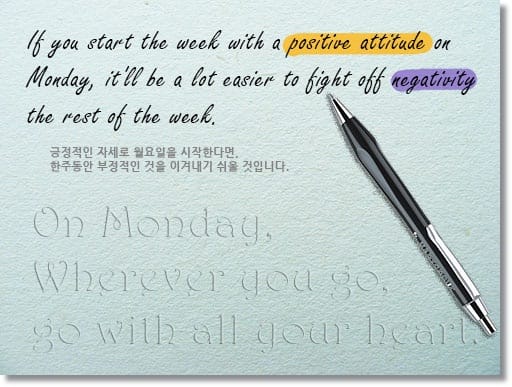 If you start the week with a positive attitude on
Monday, it'll be a lot easier to fight off negativity
the rest of the week.
긍정적인 자세로 월요일을 시작한다면,
한주동안 부정적인 것을 이겨내기 쉬울 것입니다.
On Monday,
Wherever you go,
go with all your heart.